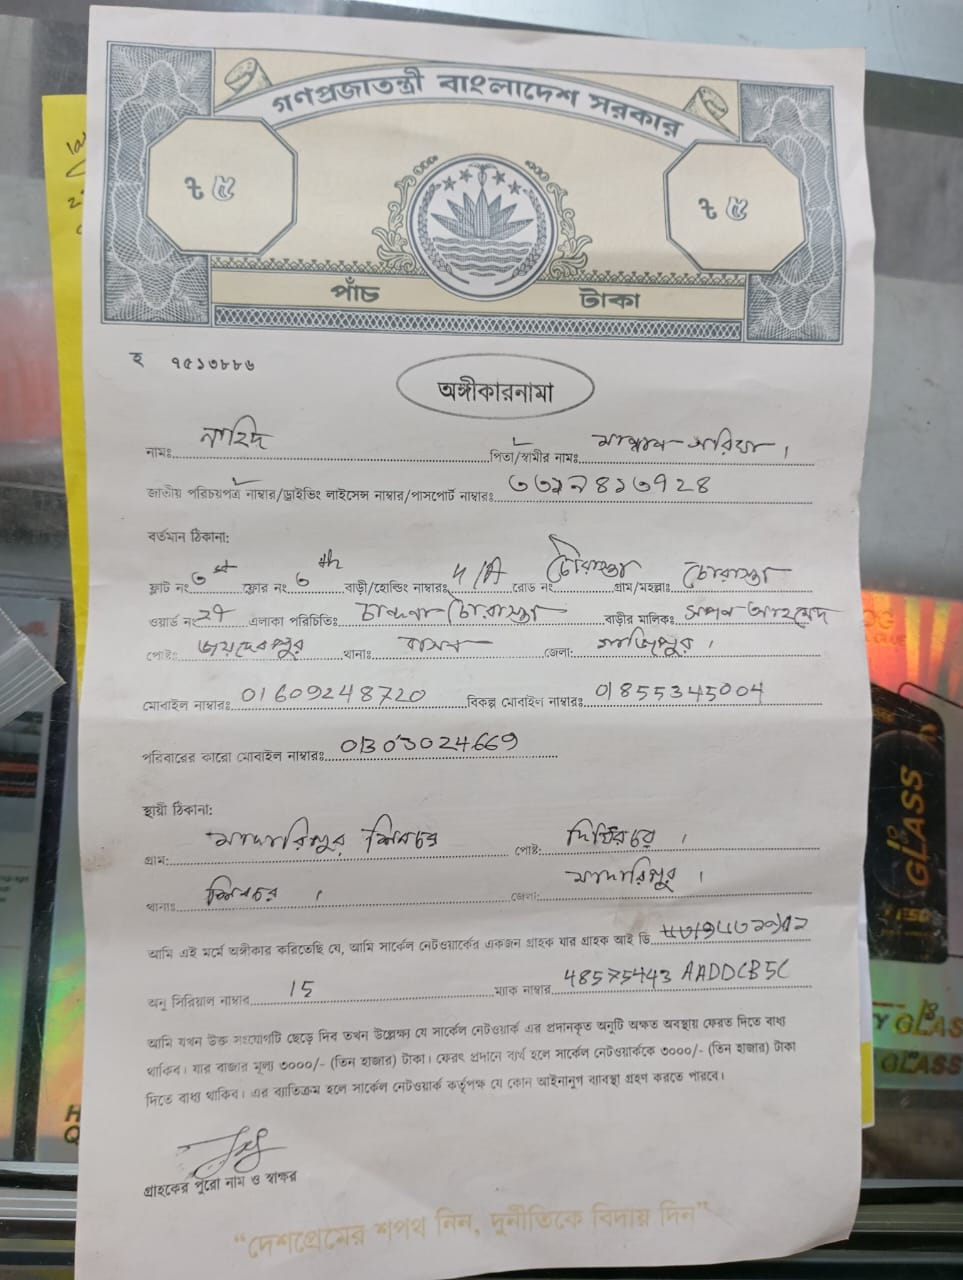 গণপ্রজাতন্ত্রী বাংলাদেশ সরকার
৳ ৫ ৳ ৫
পাঁচ টাকা
হ ৭৫১৩৮৮৬
অঙ্গীকারনামা
নামঃ নাহিদ পিতা/স্বামীর নামঃ
জাতীয় পরিচয়পত্র নাম্বার/ড্রাইভিং লাইসেন্স নাম্বার/পাসপোর্ট নাম্বারঃ
বর্তমান ঠিকানা:
ফ্লাট নং ফ্লোর নং ৬th বাড়ী/হোল্ডিং নাম্বারঃ রোড নং চৌরাস্তা গ্রাম/মহল্লাঃ চৌরাস্তা
ওয়ার্ড নং এলাকা পরিচিতিঃ চান্দনা চৌরাস্তা বাড়ীর মালিকঃ
পোষ্টঃ জয়দেবপুর থানাঃ বাসন জেলাঃ গাজিপুর।
মোবাইল নাম্বারঃ 01609248720 বিকল্প মোবাইল নাম্বারঃ 01855345004
পরিবারের কারো মোবাইল নাম্বারঃ 01303024669
স্থায়ী ঠিকানা:
গ্রাম: মাদারিপুর শিবচর পোষ্ট:
থানাঃ শিবচর। জেলা: মাদারিপুর।
আমি এই মর্মে অঙ্গীকার করিতেছি যে, আমি সার্কেল নেটওয়ার্কের একজন গ্রাহক যার গ্রাহক আই ডি
অনু সিরিয়াল নাম্বার 15 ম্যাক নাম্বার 48575443 AADDCB5C
আমি যখন উক্ত সংযোগটি ছেড়ে দিব তখন উল্লেক্ষ্য যে সার্কেল নেটওয়ার্ক এর প্রদানকৃত অনুটি অক্ষত অবস্থায় ফেরত দিতে বাধ্য
থাকিব। যার বাজার মূল্য ৩০০০/- (তিন হাজার) টাকা। ফেরৎ প্রদানে ব্যর্থ হলে সার্কেল নেটওয়ার্ককে ৩০০০/- (তিন হাজার) টাকা
দিতে বাধ্য থাকিব। এর ব্যতিক্রম হলে সার্কেল নেটওয়ার্ক কর্তৃপক্ষ যে কোন আইনানুগ ব্যবস্থা গ্রহণ করতে পারবে।
গ্রাহকের পুরো নাম ও স্বাক্ষর
“দেশপ্রেমের শপথ নিন, দুর্নীতিকে বিদায় দিন”
GLASS
GLASS